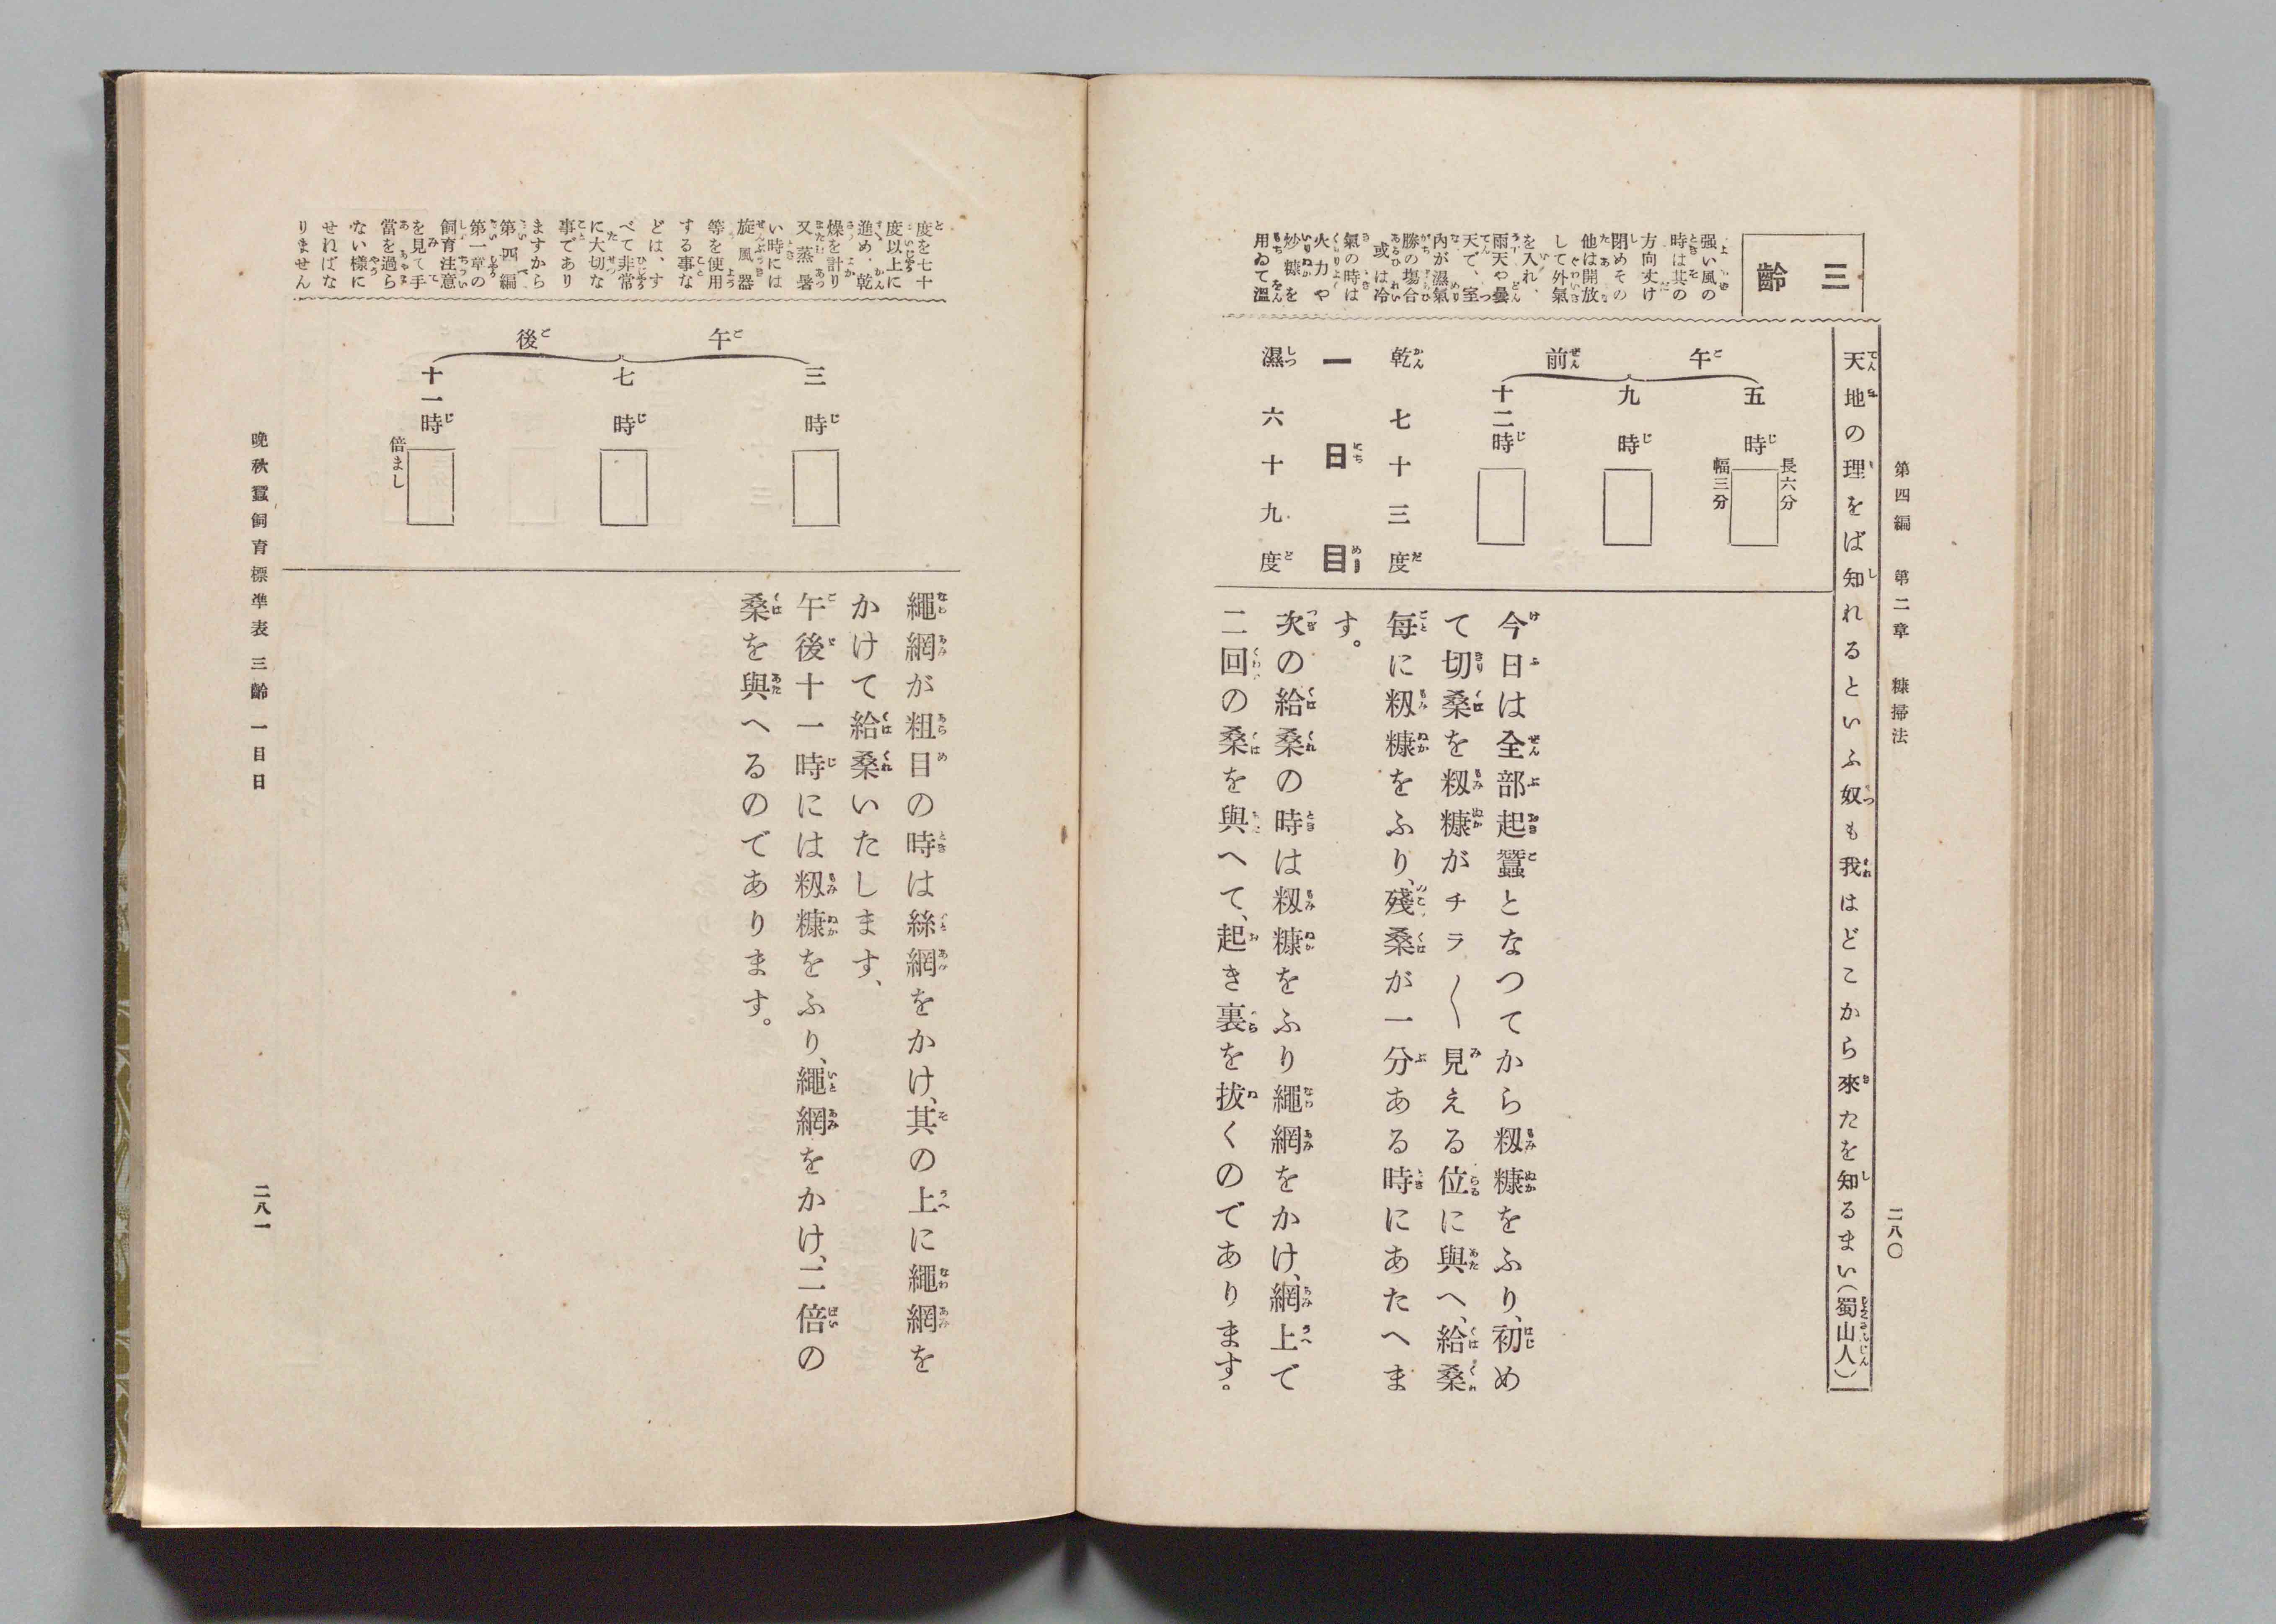 第四編　第二章　糠掃法
二八〇
天地の理をば知れるといふ奴も我はどこから來たを知るまい(蜀山人)
三齡
强い風の
時は其の
方向丈け
閉めその
他は開放
して外氣
を入れ、
雨天や曇
天で、室
內が濕氣
勝の塲合
或は冷
氣の時は
火力や
炒糠を
用ゐて溫
午前
五時
長六分
幅三分
九時
十二時
乾七十三度
一日目
濕六十九度
今日は全部起蠶となつてから籾糠をふり、初め
て切桑を籾糠がチラ〱見える位に與へ、給桑
每に籾糠をふり、殘桑が一分ある時にあたへま
す。
次の給桑の時は籾糠をふり繩網をかけ、網上で
二回の桑を與へて、起き裏を拔くのであります。
度を七十
度以上に
進め、乾
燥を計り
又蒸暑
い時には
旋風器
等を使用
する事な
どは、す
べて非常
に大切な
事であり
ますから
第四編
第一章の
飼育注意
を見て手
當を過ら
ない樣に
せねばな
りません
午後
三時
七時
十一時
倍まし
繩網が粗目の時は絲網をかけ、其の上に繩網を
かけて給桑いたします、
午後十一時には籾糠をふり、繩網をかけ、二倍の
桑を與へるのであります。
晩秋蠶飼育標準表　三齡　一目日
二八一